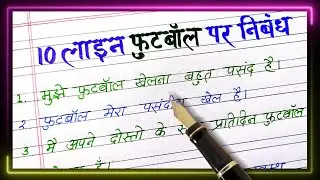 10 लाइन फुटबॉल पर निबंध
1. मुझे फुटबॉल खेलना बहुत पसंद है।
2 फुटबॉल मेरा खेल है।
3 मैं अपने दोस्तो के प्रतिदिन फुटबॉल
है।